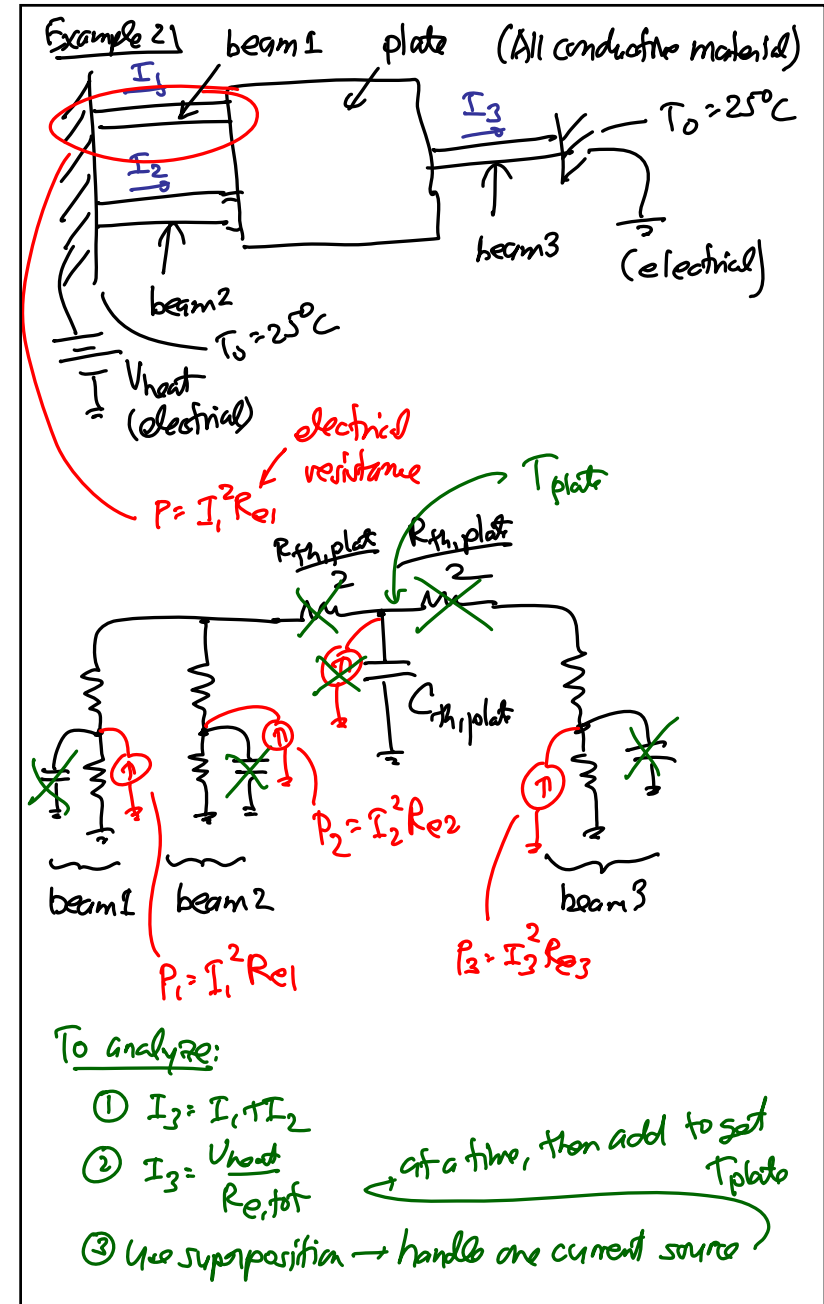 Example 2)
beam1
plate
(All conductive material)
I₁
I₃
T₀ = 25°C
I₂
beam3
(electrical)
beam2
T₀ = 25°C
Vheat
(electrical)
electrical
resistance
P = I₁²Re1
Tplate
Rth,plat
2
Rth,plat
2
Cth,plat
P₂ = I₂²Re2
beam1
beam2
beam3
P₁ = I₁²Re1
P₃ = I₃²Re3
To analyze:
① I₃ = I₁ + I₂
② I₃ = Vheat
Re,tot
③ Use superposition → handle one current source
→ at a time, then add to get
Tplate